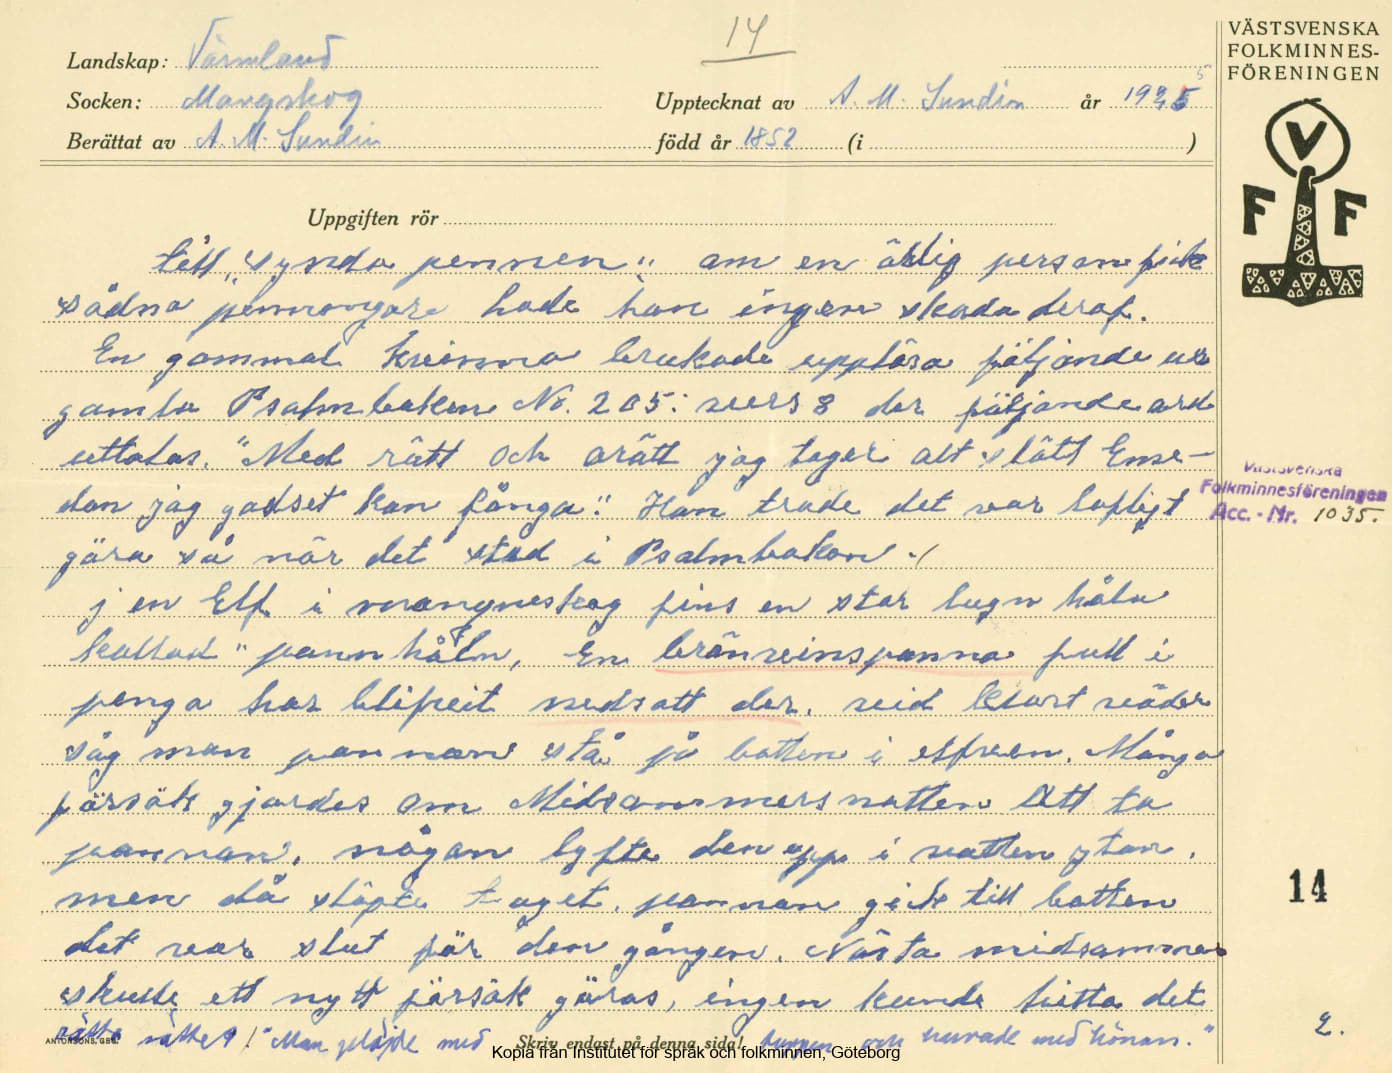 14
VÄSTSVENSKA
FOLKMINNES-
FÖRENINGEN
Landskap: Värmland
Socken: Mangskog
Upptecknat av A. M. Sundin år 1925 5
Berättat av A. M. Sundin
född år 1852 (i )
V
F F
Uppgiften rör
till "synda pennen" om en ärlig person fick
sådna penningar hade han ingen skada deraf.
En gammal krinna brukade upplösa följande ur
gamla Psalmboken No. 205: vers 8 der följande ord
uttalas. "Med rätt och orätt jag tager alt slätt Eme-
dan jag godset kan fånga." Han trode det var lofligt
göra så när det stod i Psalmboken.
Västsvenska
Folkminnesföreningen
Acc. - Nr. 1035.
j en Elf i mangneskog fins en stor lugn håla
kallad "pannhåln, En bränvinspanna full i
penga har blifvit nedsatt der. vid klart väder
såg man pannan stå på botten i elfven. Många
försök gjordes om Midsommersnatten Att ta
pannan, någon lyfte den opp i vatten ytan,
men då släpte taget, pannan gick till botten
14
det var slut för den gången. Nästa midsommer
skulle ett nytt försök göras, ingen kunde hitta det
rätta sättet! "Man plöjde med tuppen och harvade med hönan."
2.
ANTONSONS, GBG.
Skriv endast på denna sida!
Kopia från Institutet för språk och folkminnen, Göteborg